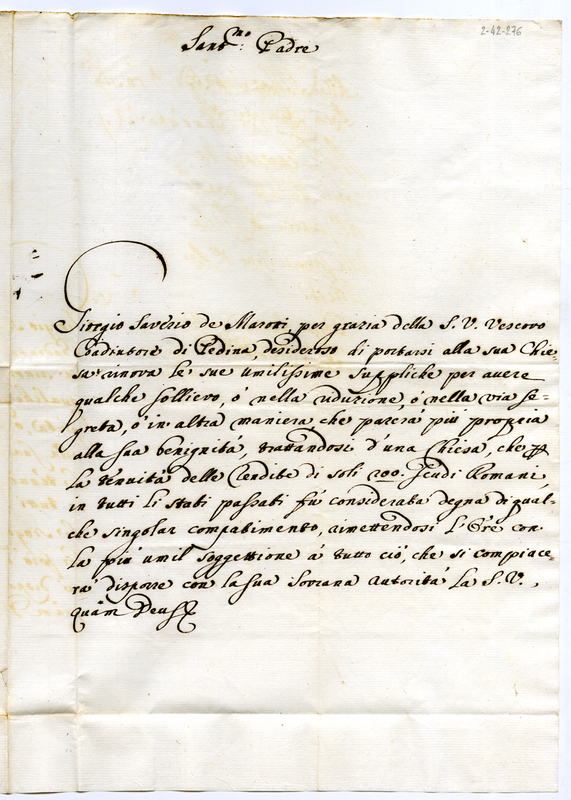 2-42-276
Sant.mo: Padre
Giorgio Saverio de Marotti, per grazia della S. V. Vescovo
Coadiutore di Pedina, desideroso di portarsi alla sua Chie-
sa rinova le sue umilissime suppliche per avere
qualche sollievo, ò nella riduzione, ò nella via se-
greta, ò in altra maniera che parerà più propria
alla sua benignità, trattandosi d'una Chiesa, che p
la tenuità delle Rendite di soli 200. Scudi Romani
in tutti li stati passati fù considerata degna di qual-
che singolar compatimento, rimettendosi l'Ore con
la più umil soggettione à tutto ciò, che si compiace-
rà disporre con la sua Sovrana autorità La S. V.,
quàm Deus